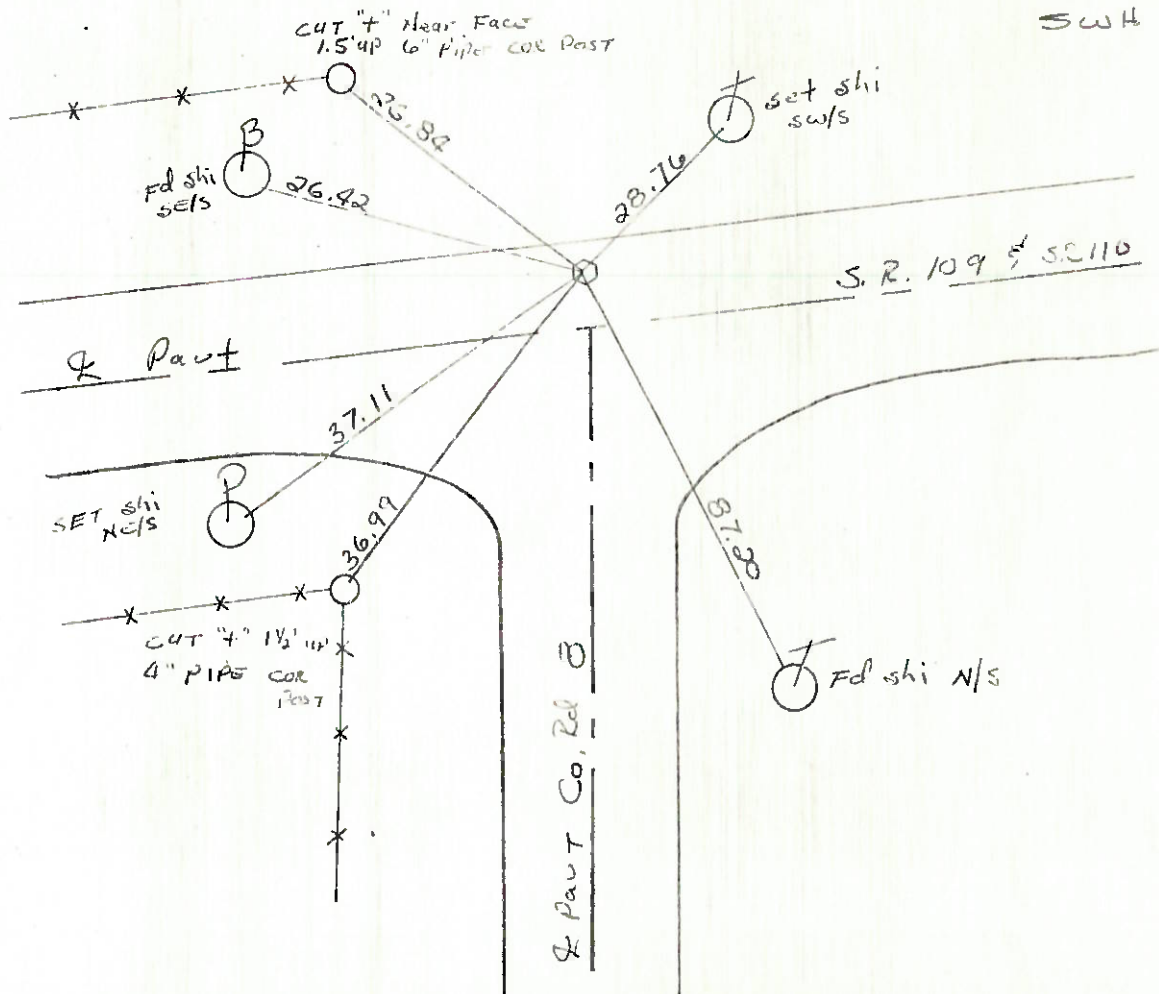 SWH
CUT "+" Near Face
1.5' up 6" Pipe COR POST
26.84
set shi
SW/S
B
Fd shi
SE/S
26.42
28.76
S. R. 109 & S.R. 110
℄ Pavt
37.11
P
SET shi
NE/S
36.99
87.20
CUT "+" 1½' up
4" PIPE COR
Post
Fd shi N/S
℄ Pavt Co. Rd